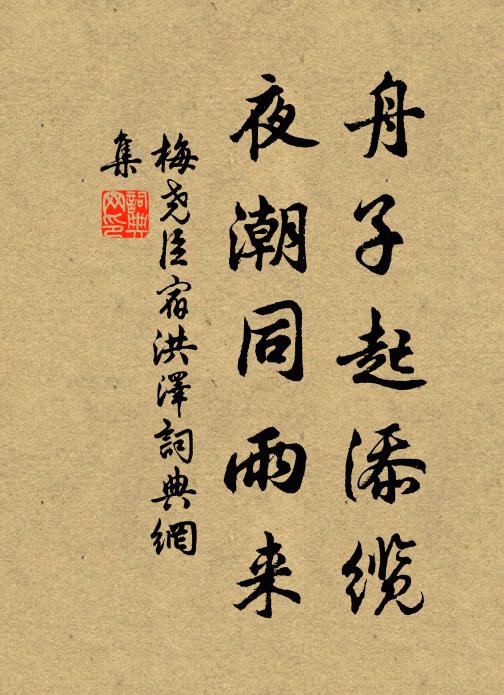 舟子起添缆
夜潮同雨来
梅尧臣宿洪澤詞典網
集
詞典网印